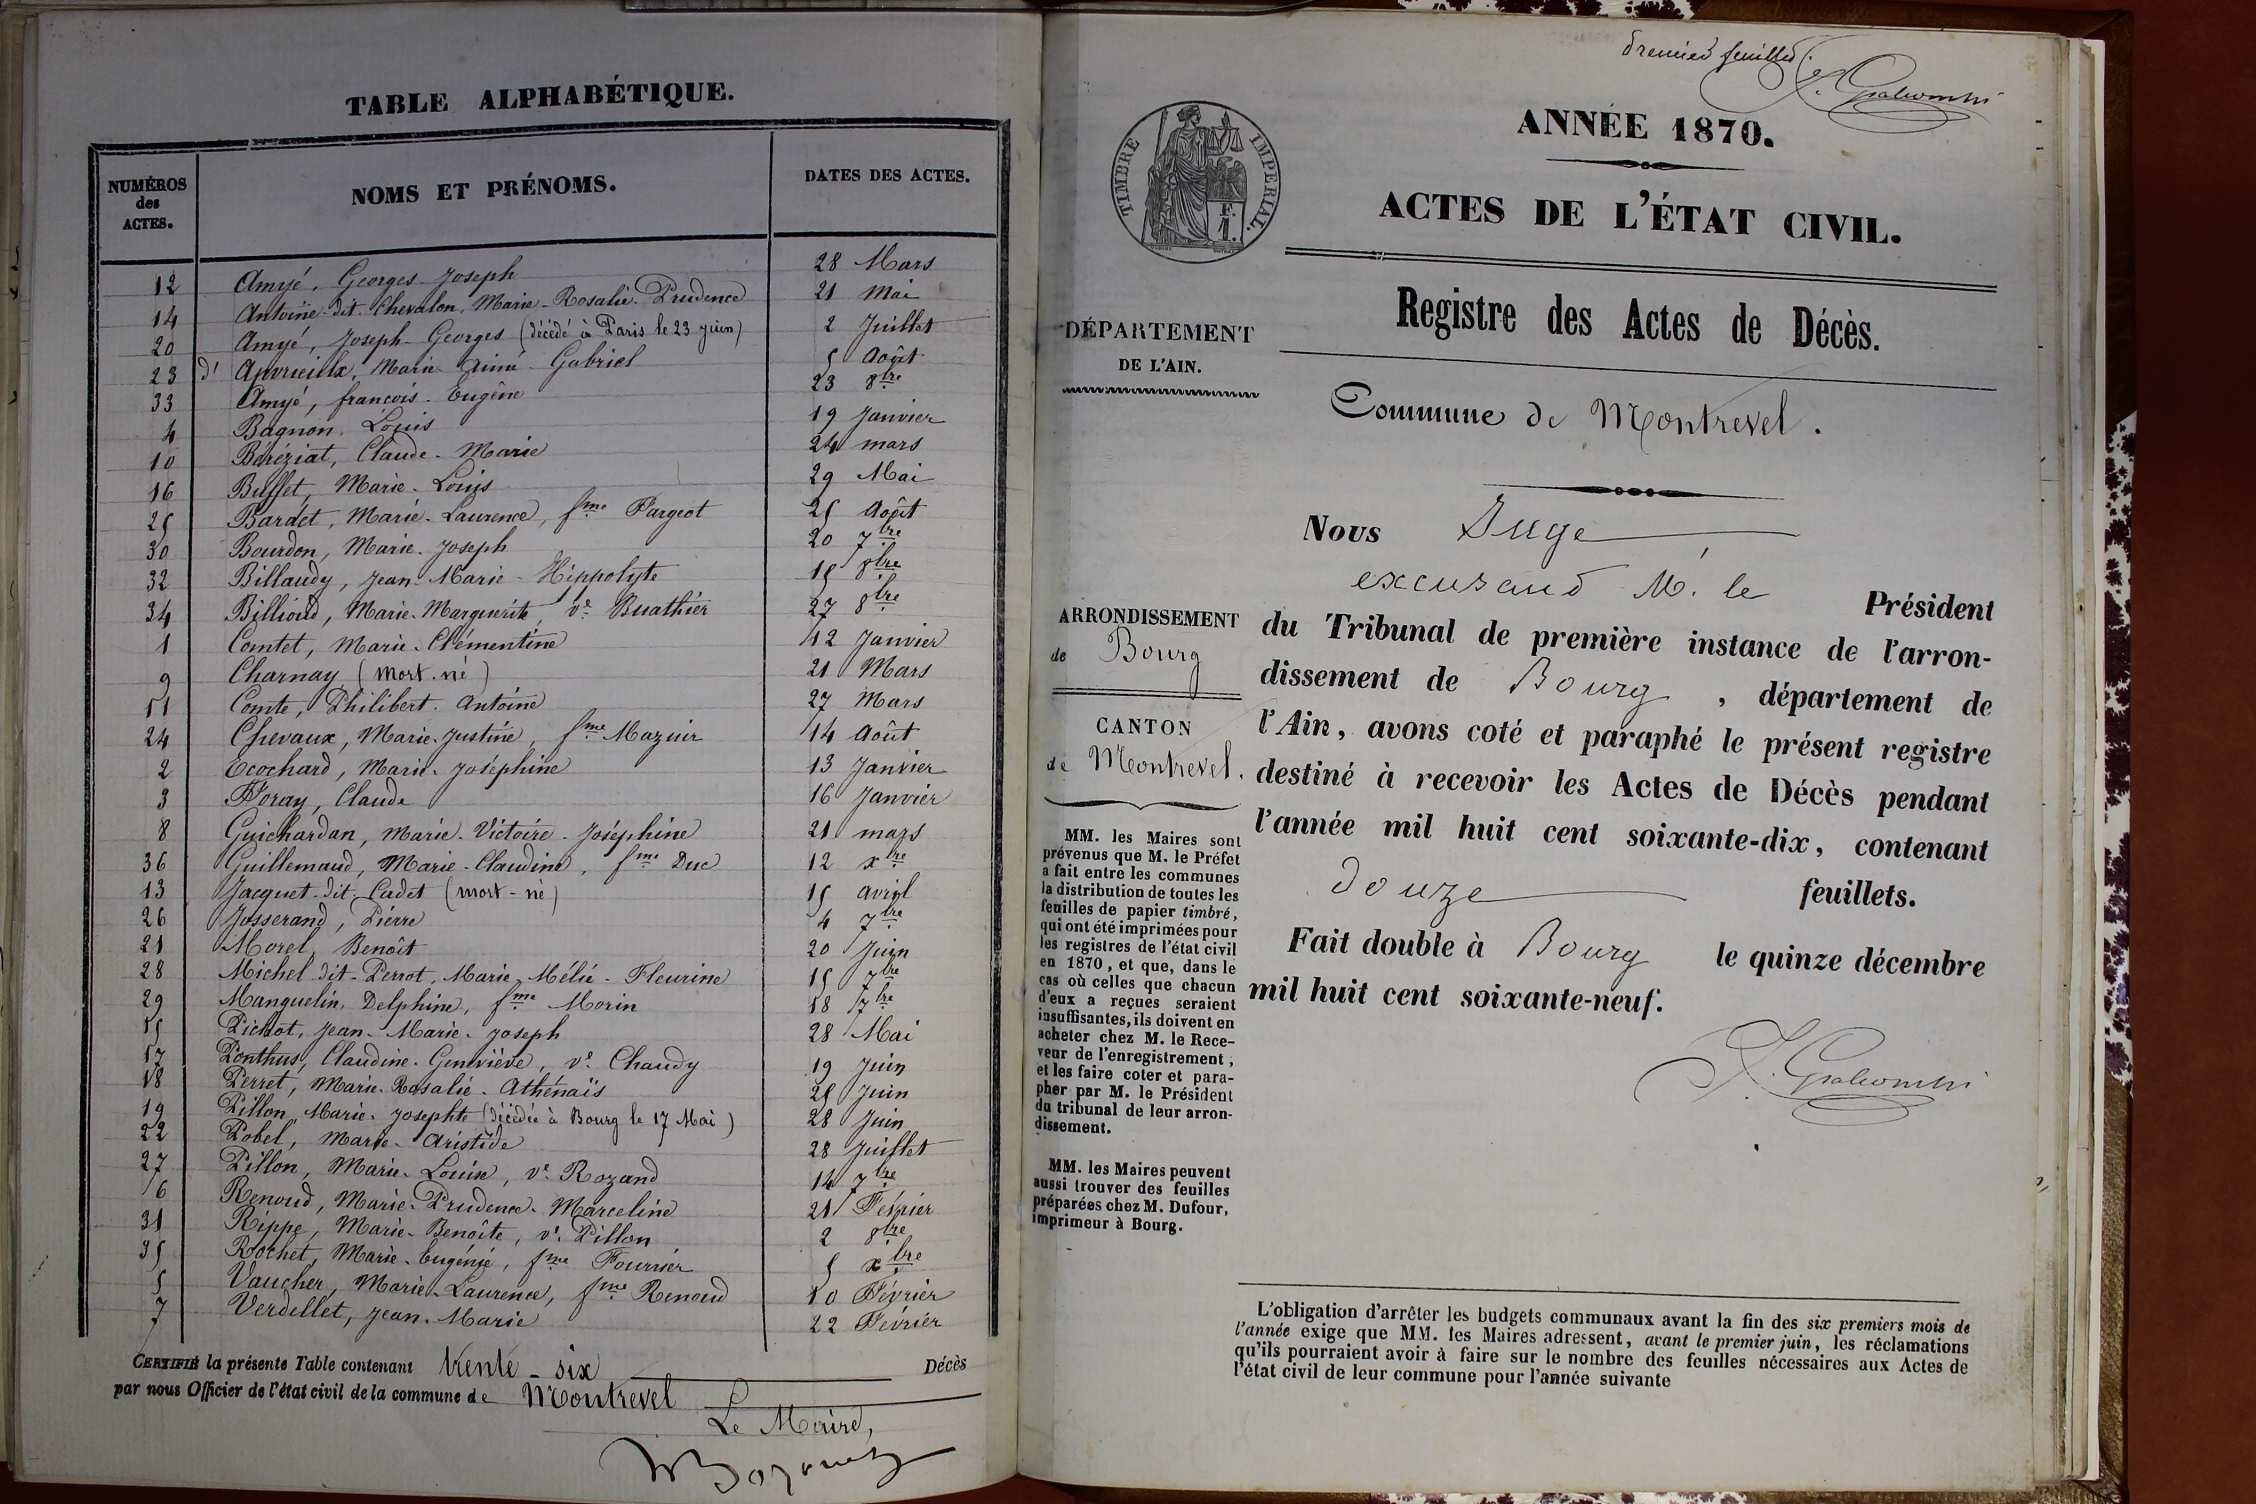 TABLE ALPHABÉTIQUE.
NUMÉROS des ACTES. NOMS ET PRÉNOMS. DATES DES ACTES.
12 Amyé, Georges Joseph 28 Mars
14 Antoine-dit-Chevalon, Marie-Rosalie-Prudence 21 Mai
20 Amyé, Joseph-Georges (décédé à Paris le 23 juin) 2 Juillet
23 d' Marie Aimé Gabriel 5 Août
33 Amyé, françois-Eugène 23 8bre
4 Bagnon, Louis 19 Janvier
10 Béréziat, Claude-Marie 24 mars
16 Buffet, Marie-Louis 29 Mai
25 Bardet, Marie-Laurence, fme Fargeot 25 Août
30 Bourdon, Marie-Joseph 20 7bre
32 Billaudy, Jean-Marie-Hippolyte 15 8bre
34 Billioud, Marie-Marguerite, ve Buathier 27 8bre
1 Comtet, Marie-Clémentine 12 Janvier
9 Charnay (mort-né) 21 Mars
11 Comte, Philibert-Antoine 27 Mars
24 Chevaux, Marie-Justine, fme Mazuir 14 Août
2 Ecochard, Marie-Joséphine 13 Janvier
3 Foray, Claude 16 Janvier
8 Guichardan, Marie-Victoire-Joséphine 21 mars
36 Guillemaud, Marie-Claudine, fme Duc 12 xbre
13 Jacquet-dit-Cadet (mort-né) 15 avril
26 Josserand, Pierre 4 7bre
21 Morel, Benoît 20 Juin
28 Michel dit-Perrot, Marie-Mélie-Fleurine 15 7bre
29 Manguelin, Delphine, fme Morin 18 7bre
15 Pichot, Jean-Marie-Joseph 28 Mai
17 Ponthus, Claudine-Geneviève, ve Chaudy 19 Juin
18 Perret, Marie-Rosalie-Athénaïs 25 Juin
19 Pillon, Marie-Josephte (décédée à Bourg le 17 Mai) 28 Juin
22 Pobel, Marie-Aristide 28 Juillet
27 Pillon, Marie-Louise, ve Rozand 14 7bre
6 Renoud, Marie-Prudence-Marceline 21 Février
31 Rippe, Marie-Benoîte, ve Pillon 2 8bre
35 Rochet, Marie-Eugénie, fme Fournier 5 xbre
5 Vaucher, Marie-Laurence, fme Renoud 10 Février
7 Verdellet, Jean-Marie 22 Février
CERTIFIÉ la présente Table contenant trente-six Décès
par nous Officier de l'état civil de la commune de Montrevel
Le Maire,
premier feuillet.
TIMBRE IMPÉRIAL.
F.
1.
ANNÉE 1870.
ACTES DE L'ÉTAT CIVIL.
Registre des Actes de Décès.
DÉPARTEMENT
DE L'AIN.
Commune de Montrevel.
ARRONDISSEMENT
de Bourg
CANTON
de Montrevel.
MM. les Maires sont
prévenus que M. le Préfet
a fait entre les communes
la distribution de toutes les
feuilles de papier timbré,
qui ont été imprimées pour
les registres de l'état civil
en 1870, et que, dans le
cas où celles que chacun
d'eux a reçues seraient
insuffisantes, ils doivent en
acheter chez M. le Rece-
veur de l'enregistrement,
et les faire coter et para-
pher par M. le Président
du tribunal de leur arron-
dissement.
MM. les Maires peuvent
aussi trouver des feuilles
préparées chez M. Dufour,
imprimeur à Bourg.
Nous Juge
excusant M. le Président
du Tribunal de première instance de l'arron-
dissement de Bourg, département de
l'Ain, avons coté et paraphé le présent registre
destiné à recevoir les Actes de Décès pendant
l'année mil huit cent soixante-dix, contenant
douze feuillets.
Fait double à Bourg le quinze décembre
mil huit cent soixante-neuf.
L'obligation d'arrêter les budgets communaux avant la fin des six premiers mois de
l'année exige que MM. les Maires adressent, avant le premier juin, les réclamations
qu'ils pourraient avoir à faire sur le nombre des feuilles nécessaires aux Actes de
l'état civil de leur commune pour l'année suivante